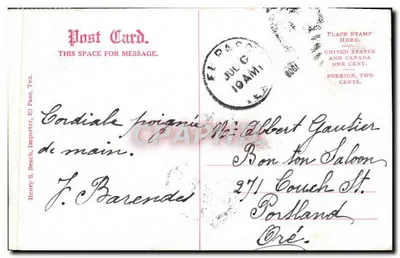 Post Card.
THIS SPACE FOR MESSAGE.
PLACE STAMP
HERE.
UNITED STATES
AND CANADA
ONE CENT.
FOREIGN, TWO
CENTS.
EL PASO
JUL 6
10 AM
TEX.
Henry S. Beach, Importer, El Paso, Tex.
Cordiale poignée
de main.
J. Barendes
Mr Albert Gautier
Bon ton Saloon
271 Couch St.
Portland
Oré.